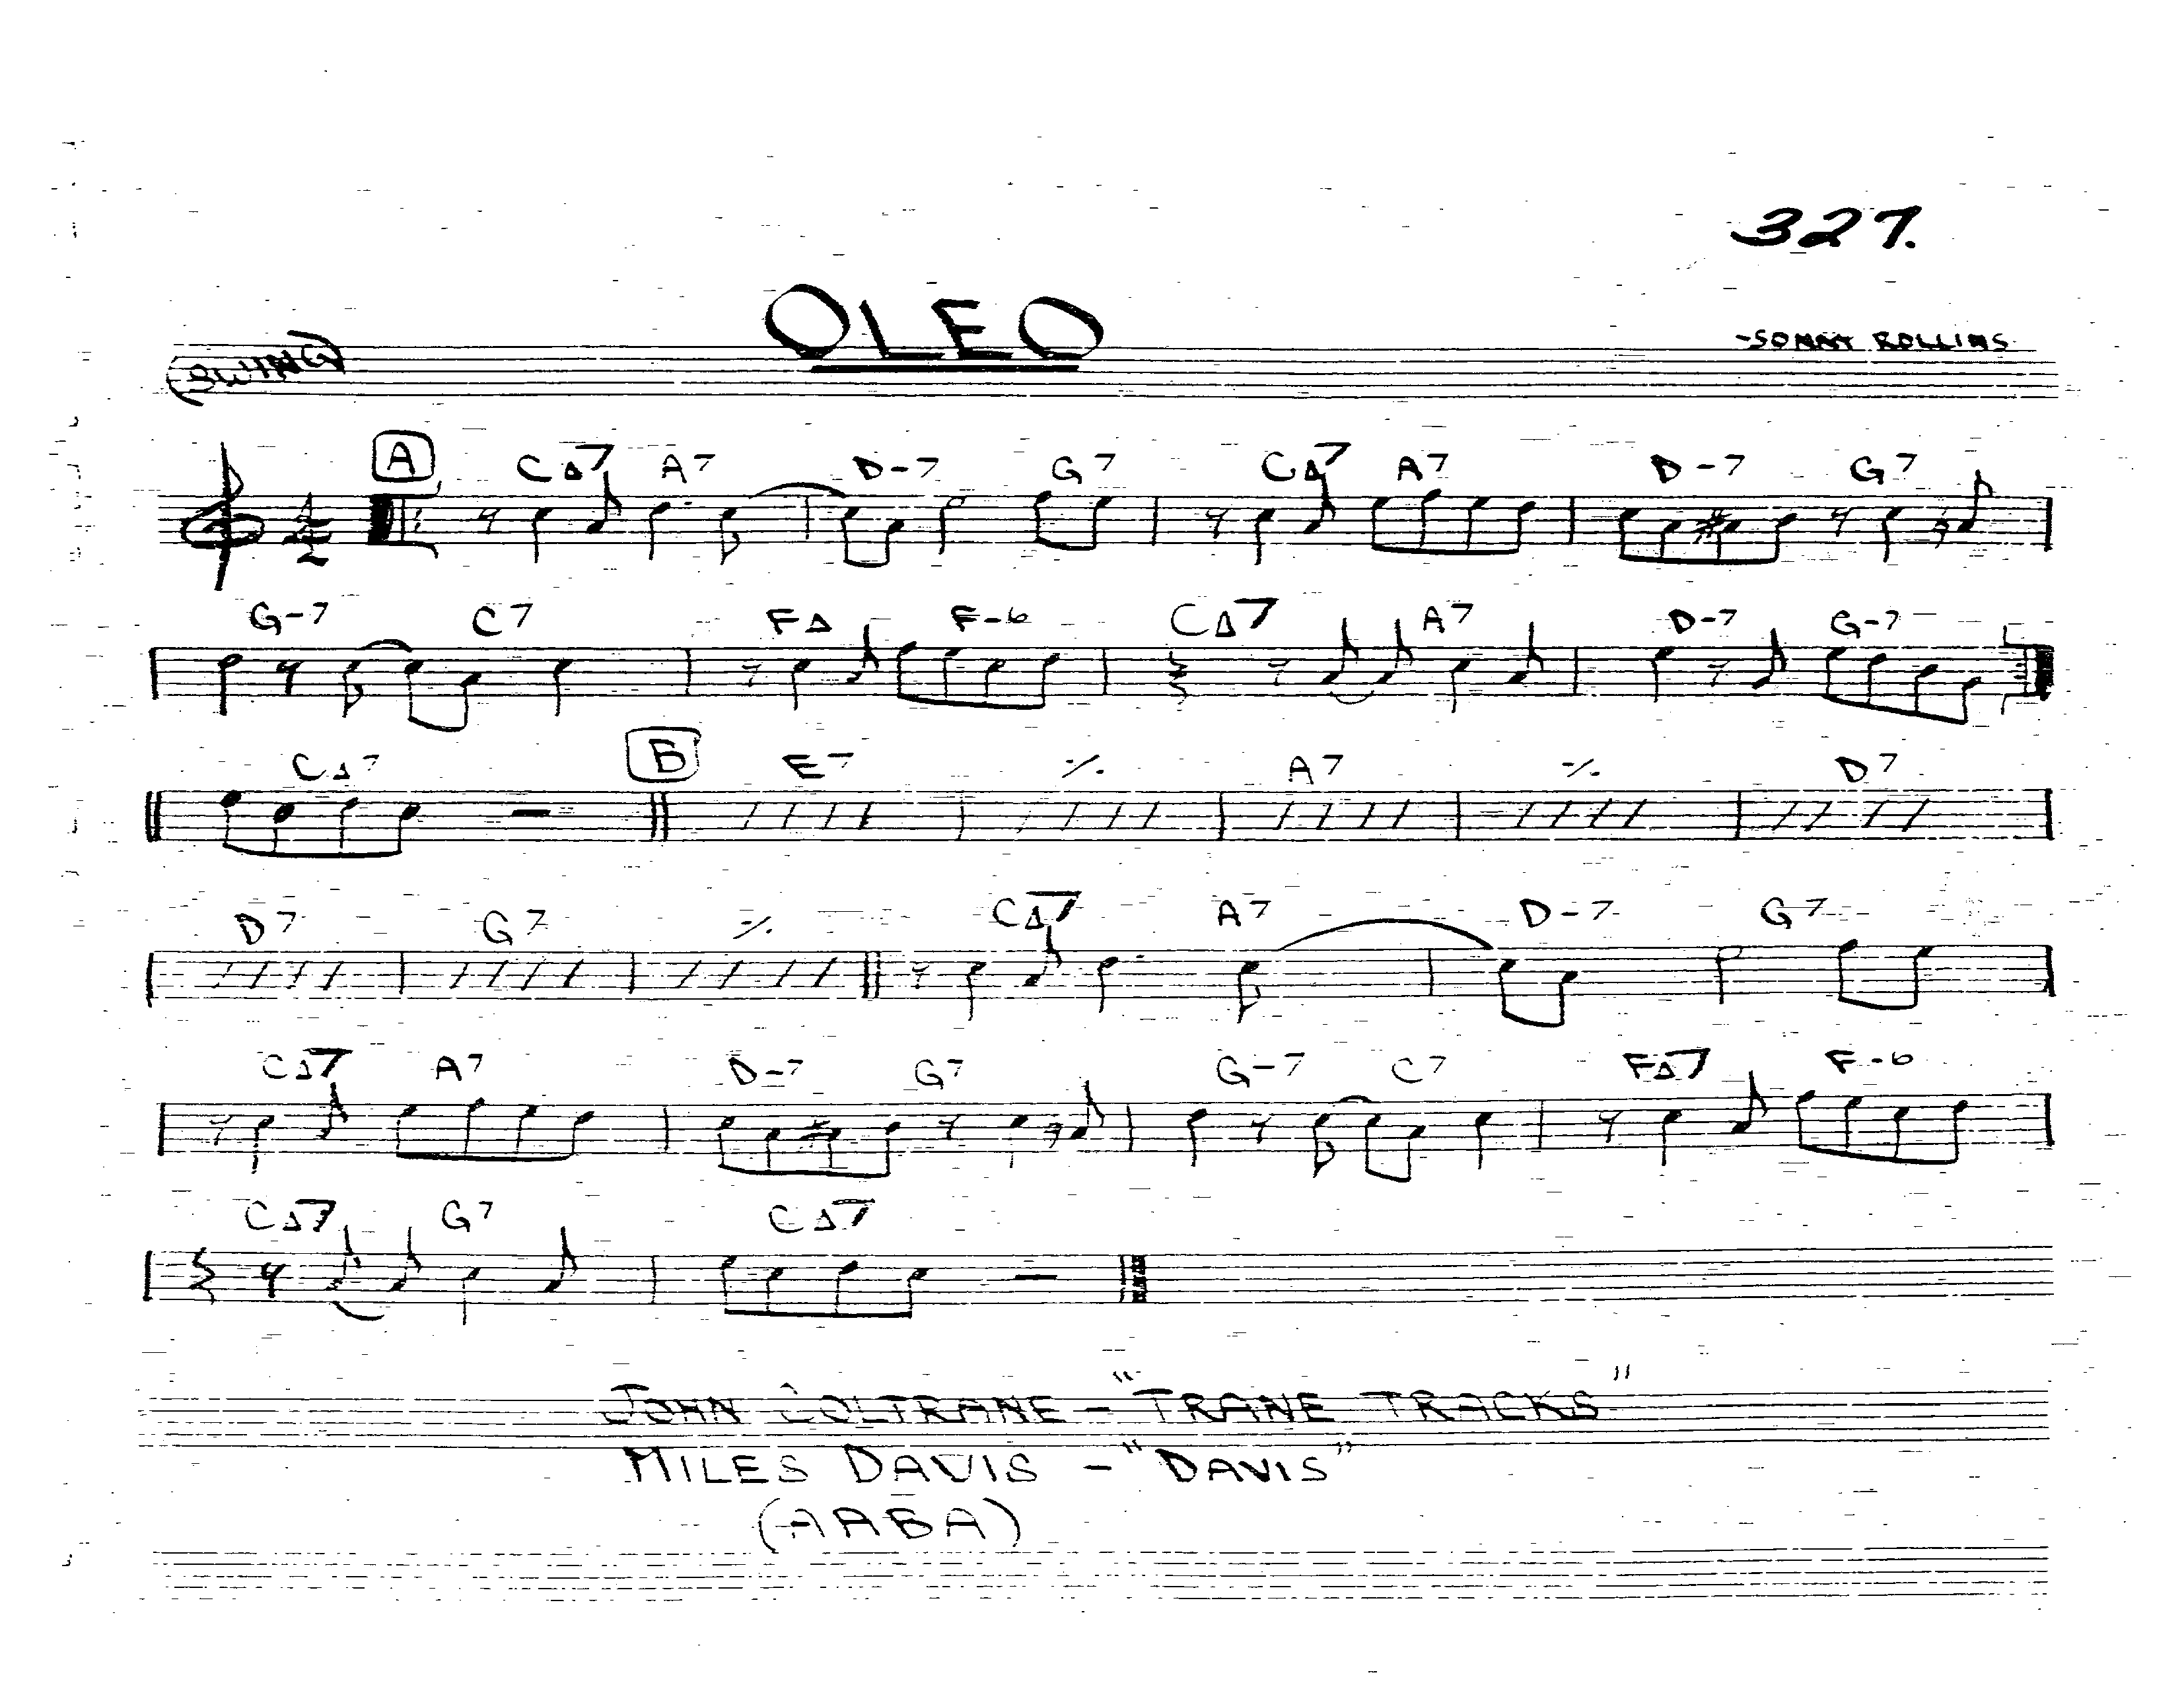 327.
OLEO
(SWING)
-SONNY ROLLINS
A
C△7 A7 D-7 G7 C△7 A7 D-7 G7
G-7 C7 F△ F-6 C△7 A7 D-7 G-7
B
C△7 E7 ٪ A7 ٪ D7
D7 G7 ٪ C△7 A7 D-7 G7
C△7 A7 D-7 G7 G-7 C7 F△7 F-6
C△7 G7 C△7
JOHN COLTRANE - "TRANE TRACKS"
MILES DAVIS - "DAVIS"
(AABA)